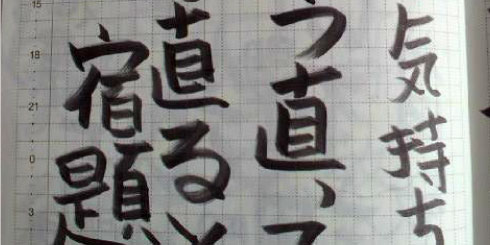 気持ち
う直、て
直ると
宿題
15
18
21
0
3